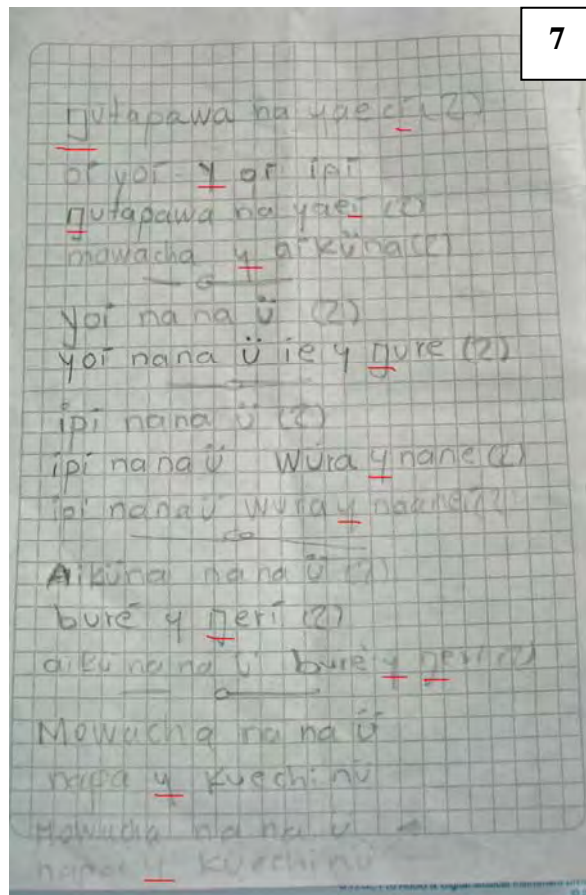 7
ŋutapawa na yaeci (2)
or yoi y gri ipi
ŋutapawa na yaei (2)
mawacha y aikүna (2)
yoi na na ü (2)
yoi nana ü ie y ŋure (2)
ipi nana ü (2)
ipi nana ü wura y nane (2)
ipi nana ü wura y naane (2)
Aikuna na na ü (2)
bure y ŋeri (2)
aiku na na ü bure y ŋeri (2)
Mowacha na na ü
napa y kuechinü
Mowacha na na ü
napa y kuechinü